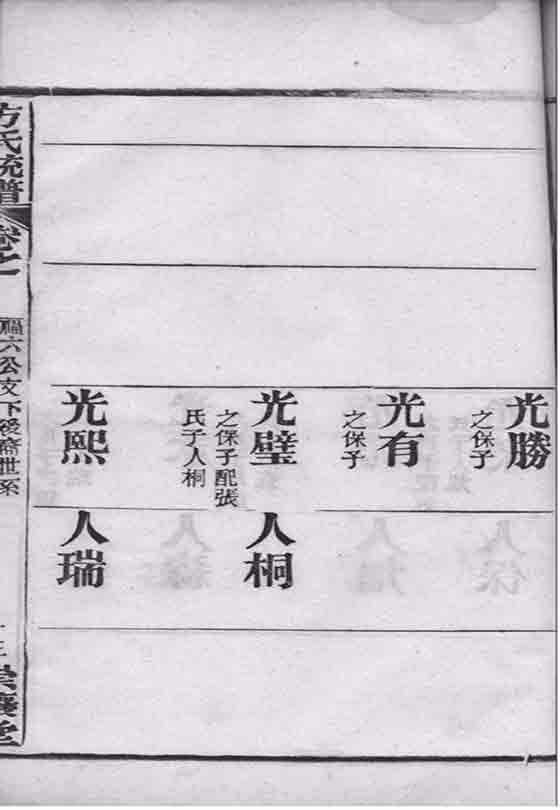 光勝
之保子
光有
之保子
光璧
之保子配張
氏子人桐
人桐
光熙
人瑞
方氏統譜
卷之
福六公支下後裔世系